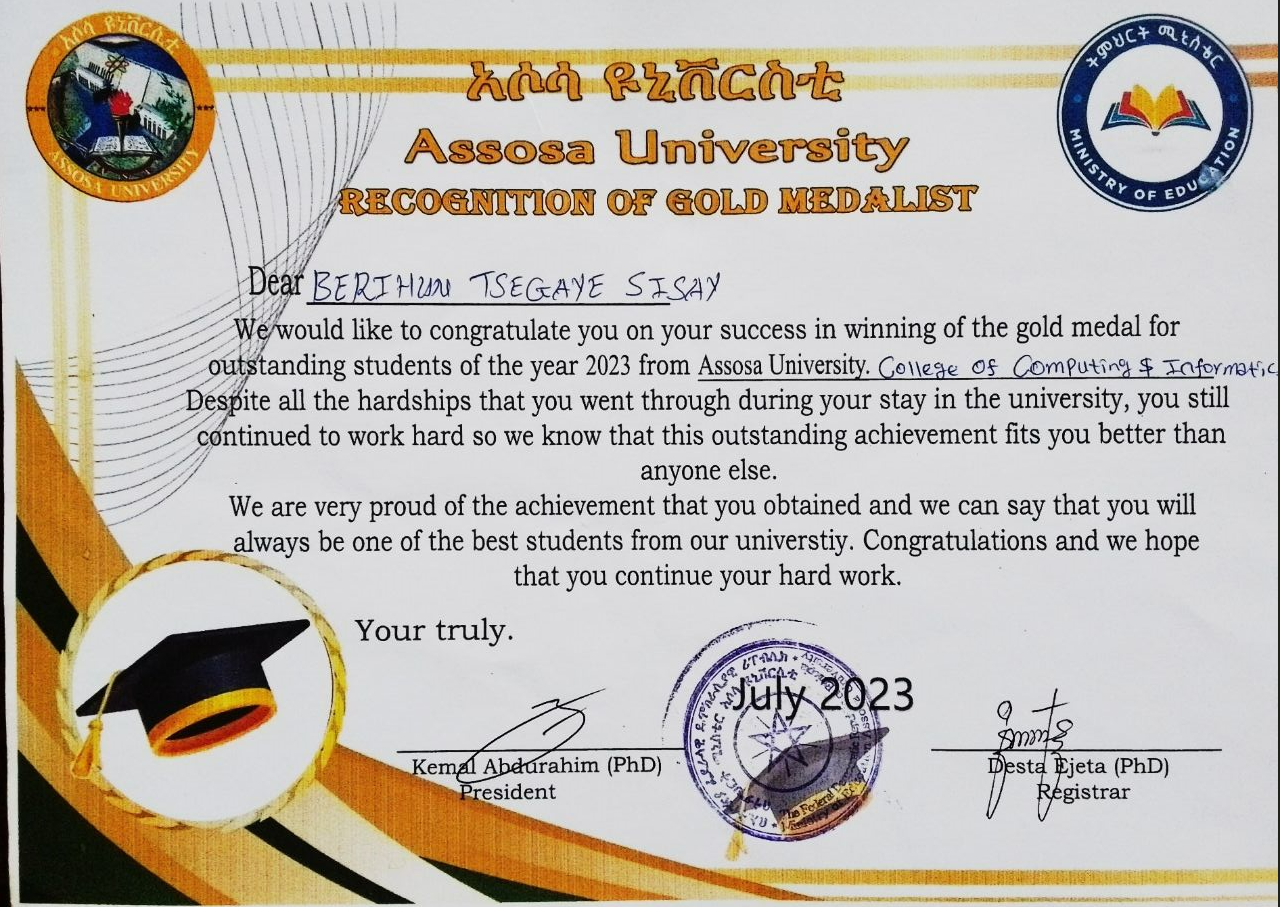 አሶሳ ዩኒቨርስቲ
ASSOSA UNIVERSITY
ትምህርት ሚኒስቴር
MINISTRY OF EDUCATION
አሶሳ ዩኒቨርስቲ
Assosa University
RECOGNITION OF GOLD MEDALIST
Dear BERIHUN TSEGAYE SISAY
We would like to congratulate you on your success in winning of the gold medal for
outstanding students of the year 2023 from Assosa University. College of Computing & Informatic
Despite all the hardships that you went through during your stay in the university, you still
continued to work hard so we know that this outstanding achievement fits you better than
anyone else.
We are very proud of the achievement that you obtained and we can say that you will
always be one of the best students from our universtiy. Congratulations and we hope
that you continue your hard work.
Your truly.
July 2023
Kemal Abdurahim (PhD)
President
Desta Ejeta (PhD)
Registrar